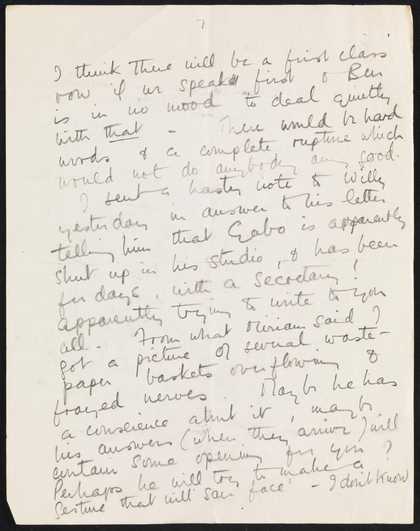 7
I think there will be a first class
row if we speak first & Ben
is in no mood to deal quietly
with that – There would be hard
words & a complete rupture which
would not do anybody any good.
I sent a hasty note to Willy
yesterday in answer to his letter
telling him that Gabo is apparently
shut up in his studio, & has been
for days, with a secretary!
apparently trying to write to you
all. From what Miriam said I
got a picture of several waste-
paper baskets overflowing &
frayed nerves. Maybe he has
a conscience about it, maybe
his answers (when they arrive) will
contain some opening for you?
Perhaps he will try to make a
gesture that will save face – I don't know